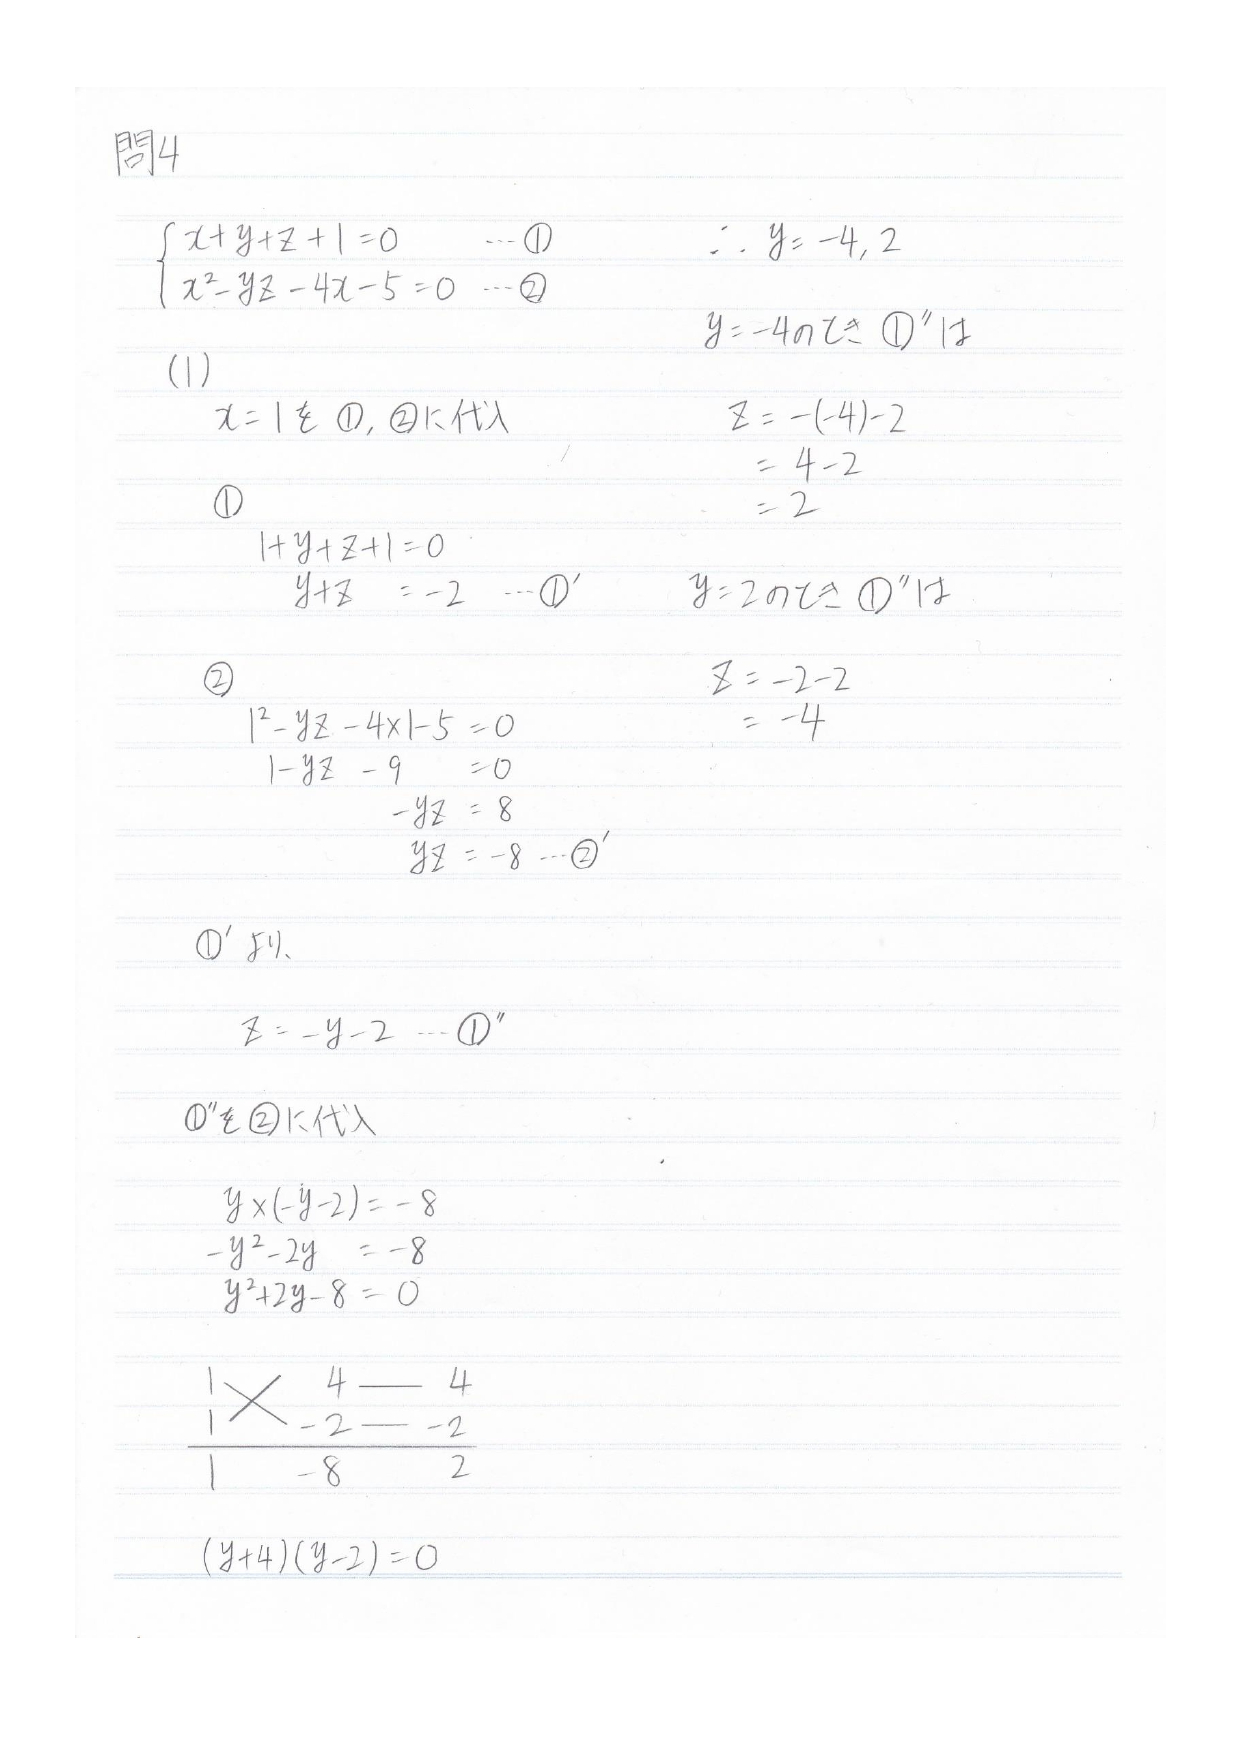 問4
x+y+z+1=0 …①
x²-yz-4x-5=0 …②
(1)
x=1を①,②に代入
①
1+y+z+1=0
y+z =-2 …①′
②
1²-yz-4×1-5=0
1-yz -9 =0
-yz =8
yz =-8 …②′
①′より、
z=-y-2 …①″
①″を②に代入
y×(-y-2)=-8
-y²-2y =-8
y²+2y-8=0
1 4 — 4
1 -2 — -2
1 -8 2
(y+4)(y-2)=0
∴ y=-4,2
y=-4のとき①″は
z=-(-4)-2
=4-2
=2
y=2のとき①″は
z=-2-2
=-4